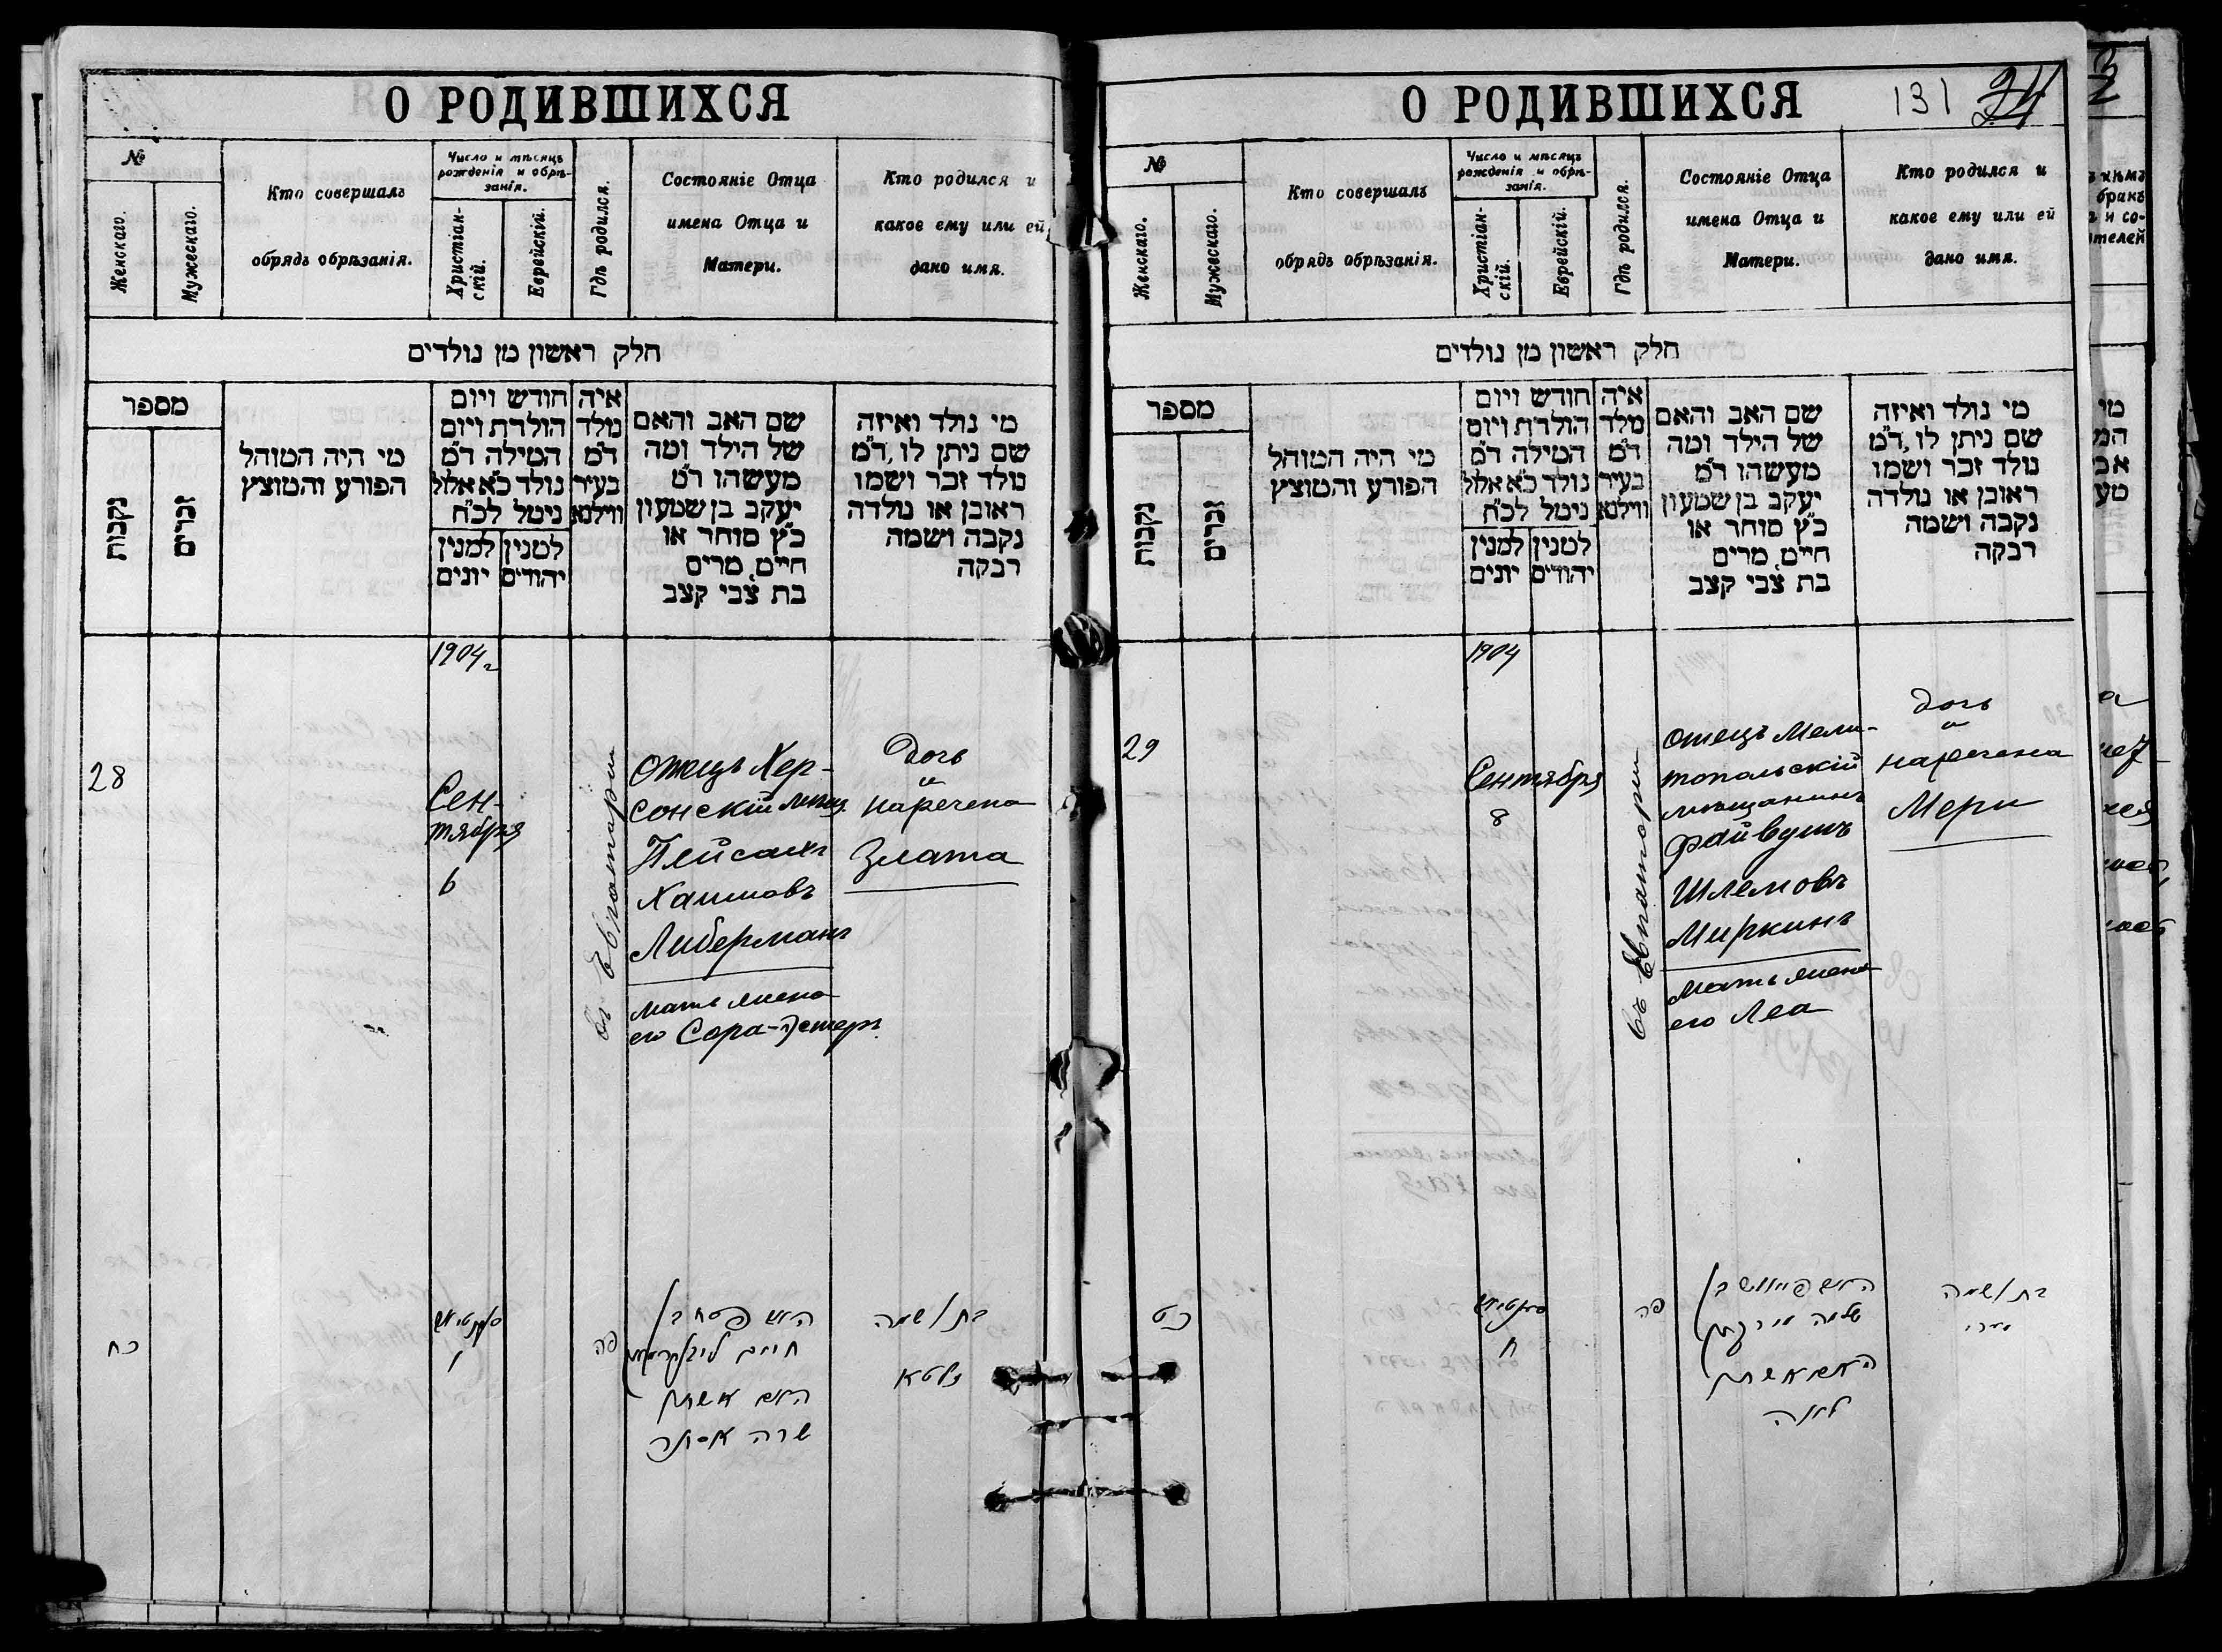 О РОДИВШИХСЯ
№
Женскаго.
Мужескаго.
Кто совершалъ
обрядъ обрѣзанія.
Число и мѣсяцъ
рожденія и обрѣ-
занія.
Христіан-
скій.
Еврейскій.
Гдѣ родился.
Состояніе Отца
имена Отца и
Матери.
Кто родился и
какое ему или ей
дано имя.
חלק ראשון מן נולדים
מספר
נקבות
זכרים
מי היה המוהל
הפורע והמוצץ
חודש ויום
הולדת ויום
המילה ד״מ
נולד כ״א אלול
נימל לכ״ח
למנין
יהודים
למנין
יונים
איה
מלד
ד״מ
בעיר
ווילנא
שם האב והאם
של הילד ומה
מעשהו ד״מ
יעקב בן שמעון
כ״ץ סוחר או
חייט, מרים
בת צבי קצב
מי נולד ואיזה
שם ניתן לו, ד״מ
נולד זכר ושמו
ראובן או נולדה
נקבה ושמה
רבקה
1904 г
28
Сен-
тября
6
въ Евпаторіи
Отецъ Хер-
сонскій мѣщ
Пейсахъ
Хаимовъ
Либерманъ
мать жена
его Сора-Эстеръ
Дочь
и
наречена
Злата
כח
ו
פה
האב פסח בן
חיים ליבערמאן
האם אשתו
שרה אסתר
בת ושמה
זלטא
О РОДИВШИХСЯ
131
№
Женскаго.
Мужескаго.
Кто совершалъ
обрядъ обрѣзанія.
Число и мѣсяцъ
рожденія и обрѣ-
занія.
Христіан-
скій.
Еврейскій.
Гдѣ родился.
Состояніе Отца
имена Отца и
Матери.
Кто родился и
какое ему или ей
дано имя.
חלק ראשון מן נולדים
מספר
נקבות
זכרים
מי היה המוהל
הפורע והמוצץ
חודש ויום
הולדת ויום
המילה ד״מ
נולד כ״א אלול
נימל לכ״ח
למנין
יהודים
למנין
יונים
איה
מלד
ד״מ
בעיר
ווילנא
שם האב והאם
של הילד ומה
מעשהו ד״מ
יעקב בן שמעון
כ״ץ סוחר או
חייט, מרים
בת צבי קצב
מי נולד ואיזה
שם ניתן לו, ד״מ
נולד זכר ושמו
ראובן או נולדה
נקבה ושמה
רבקה
1904
29
Сентября
8
въ Евпаторіи
Отецъ Мели-
топольскій
мѣщанинъ
Файвушъ
Шлемовъ
Миркинъ
Мать жена
его Леа
дочь
и
наречена
Мери
כט
ח
פה
האב פייוויש בן
שלמה מירקין
האם אשתו
לאה
בת ושמה
מערי